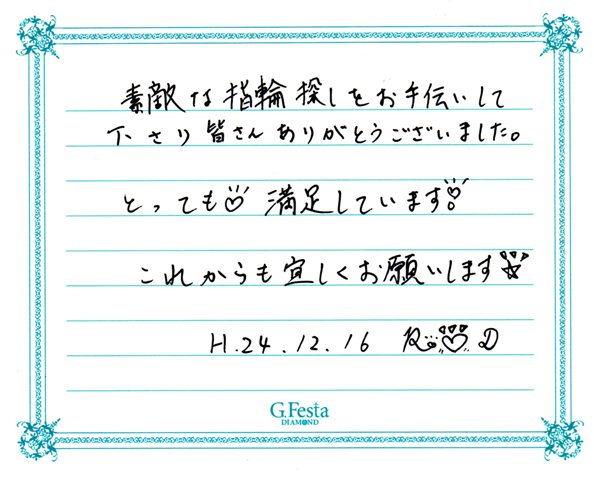 素敵な指輪探しをお手伝いして
下さり皆さんありがとうございました。
とっても♡満足しています♡
これからも宜しくお願いします
H.24.12.16 R♡D
G.Festa
DIAMOND